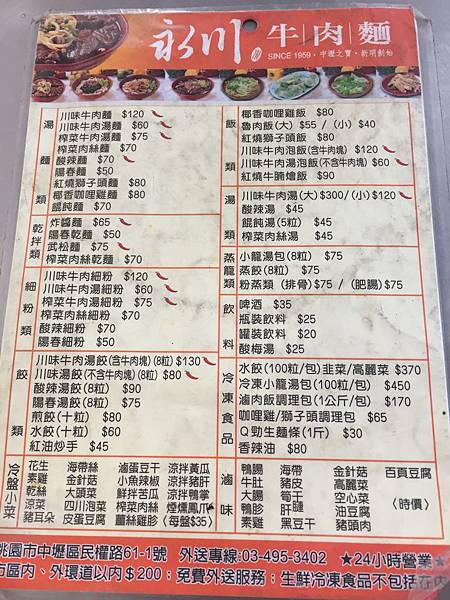 永川 牛肉麵
SINCE 1959 · 中壢之寶 · 新明創始
湯麵類
川味牛肉麵 $120
川味牛肉湯麵 $60
榨菜牛肉湯麵 $75
榨菜肉絲麵 $70
酸辣麵 $70
陽春麵 $50
紅燒獅子頭麵 $80
椰香咖哩雞麵 $80
餛飩麵 $70
乾拌類
炸醬麵 $65
陽春乾麵 $50
武松麵 $75
榨菜肉絲乾麵 $70
細粉類
川味牛肉細粉 $120
川味牛肉湯細粉 $60
榨菜牛肉湯細粉 $75
榨菜肉絲細粉 $70
酸辣細粉 $70
陽春細粉 $50
餃類
川味牛肉湯餃(含牛肉塊)(8粒) $130
川味湯餃(不含牛肉塊)(8粒) $80
酸辣湯餃(8粒) $90
陽春湯餃(8粒) $70
煎餃(十粒) $80
水餃(十粒) $60
紅油炒手 $45
冷盤小菜
花生 海帶絲 滷蛋豆干 涼拌黃瓜
素雞 金針菇 小魚辣椒 涼拌豬肝
乾絲 大頭菜 鮮拌苦瓜 涼拌鴨掌
涼菜 四川泡菜 榨菜肉絲 煙燻鳳爪
豬耳朵 皮蛋豆腐 薑絲雞胗 〈每盤$35〉
飯類
椰香咖哩雞飯 $80
魯肉飯(大) $55 / (小) $40
紅燒獅子頭飯 $80
川味牛肉泡飯(含牛肉塊) $120
川味牛肉湯泡飯(不含牛肉塊) $60
紅燒牛腩燴飯 $90
湯類
川味牛肉湯(大)$300/(小)$120
酸辣湯 $45
餛飩湯(5粒) $45
榨菜肉絲湯 $45
蒸籠類
小龍湯包(8粒) $75
蒸餃(8粒) $75
粉蒸類 (排骨) $75 / (肥腸) $75
飲料
啤酒 $35
瓶裝飲料 $25
罐裝飲料 $20
酸梅湯 $25
冷凍食品
水餃(100粒/包)韭菜/高麗菜 $370
冷凍小龍湯包(100粒/包) $450
滷肉飯調理包(1公斤/包) $170
咖哩雞/獅子頭調理包 $65
Q勁生麵條(1斤) $30
香辣油 $80
滷味
鴨腸 海帶 金針菇 百頁豆腐
牛肚 豬皮 高麗菜
大腸 筍干 空心菜 〈時價〉
鴨胗 肝腱 油豆腐
素雞 黑豆干 豬頭肉
桃園市中壢區民權路61-1號 外送專線:03-495-3402 ★24小時營業★
市區內、外環道以內$200；免費外送服務；生鮮冷凍食品不包括在內